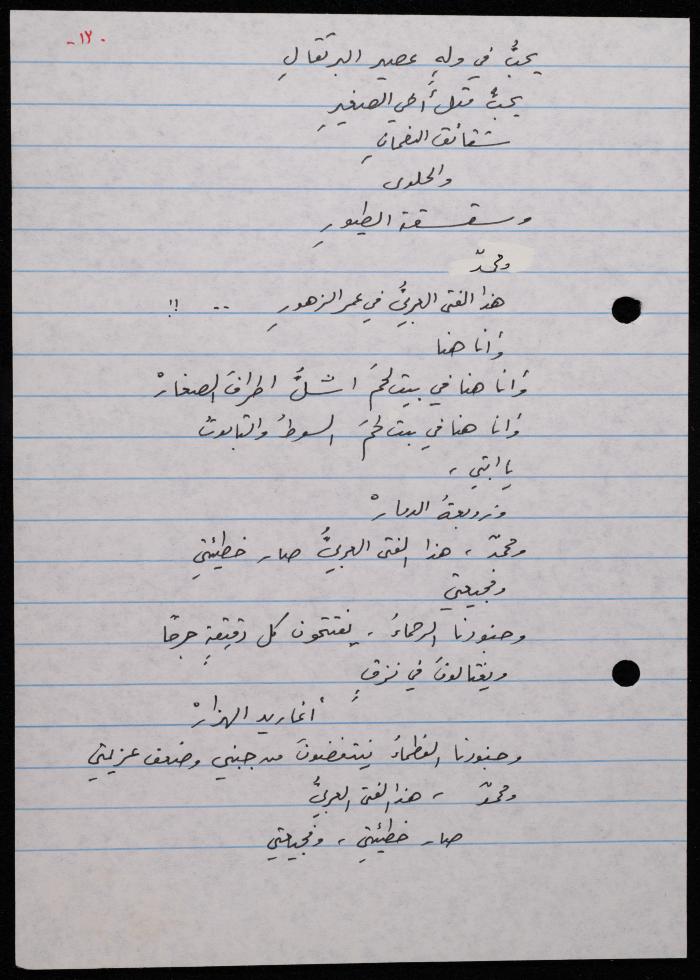 - ١٢ -
يحبُّ في ولهٍ عصير البرتقالِ
يحبُّ مثل أخي الصغيرِ
شقائق النعمانِ
والحلوى
وسقسقة الطيورِ
ومحمدّ
هذا الفتى العربيُّ في عمر الزهورِ .. !!
وأنا هنا
وأنا هنا في بيت لحمَ اشلُّ اطرافَ الصغارْ
وأنا هنا في بيت لحمَ السوطُ والتابوتُ
يا ابتي ،
وزوبعةُ الدمارْ
ومحمدّ ، هذا الفتى العربيُّ صار خطيئتي
وفجيعتي
وجنودنا الرحماءُ ، يفتحون كل دقيقةٍ جرحًا
ويغتالونَ في نزقٍ
أغاريد الهزارْ
وجنودنا العظماءُ ينتفضونَ من جبني وضعف عزيمتي
ومحمدّ ، هذا الفتى العربيُّ
صار خطيئتي ، وفجيعتي